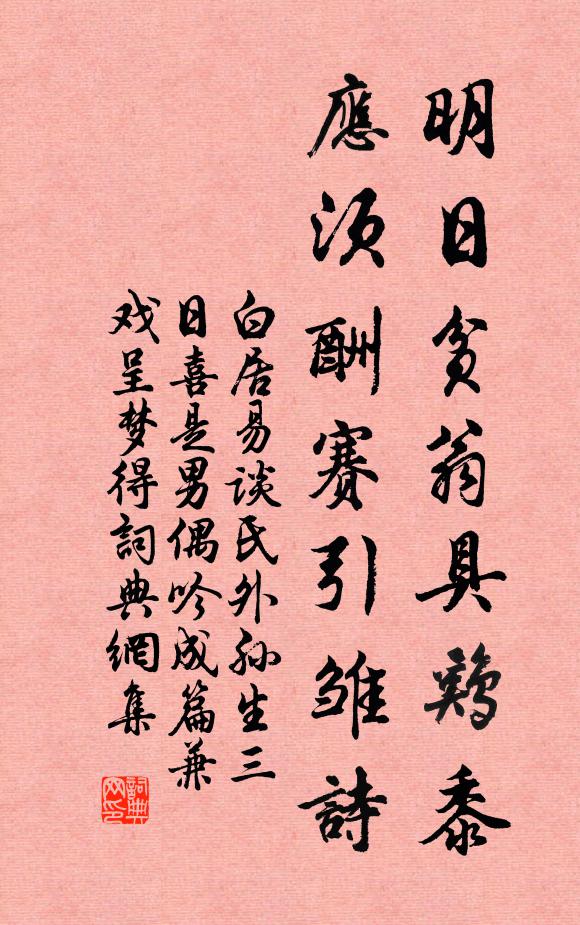 明日贫翁具鷄黍
應須酬賽引雏詩
白居易谈氏外孙生三
日喜是男偶吟成篇兼
戏呈梦得詞典網集
詞典
网印